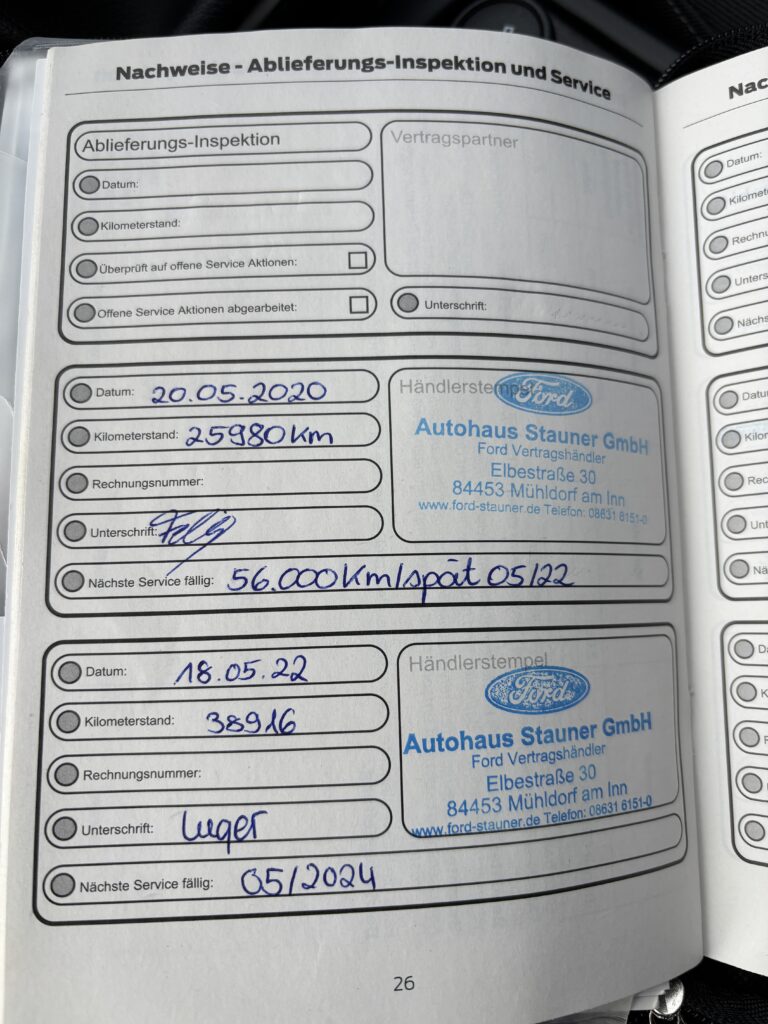 Nachweise - Ablieferungs-Inspektion und Service
Ablieferungs-Inspektion
Datum:
Kilometerstand:
Überprüft auf offene Service Aktionen:
Offene Service Aktionen abgearbeitet:
Vertragspartner
Unterschrift:
Datum: 20.05.2020
Kilometerstand: 25980 Km
Rechnungsnummer:
Unterschrift:
Nächste Service fällig: 56.000 Km/spät 05/22
Händlerstempel
Ford
Autohaus Stauner GmbH
Ford Vertragshändler
Elbestraße 30
84453 Mühldorf am Inn
www.ford-stauner.de Telefon: 08631 6151-0
Datum: 18.05.22
Kilometerstand: 38916
Rechnungsnummer:
Unterschrift: Luger
Nächste Service fällig: 05/2024
Händlerstempel
Ford
Autohaus Stauner GmbH
Ford Vertragshändler
Elbestraße 30
84453 Mühldorf am Inn
www.ford-stauner.de Telefon: 08631 6151-0
26
Datum: